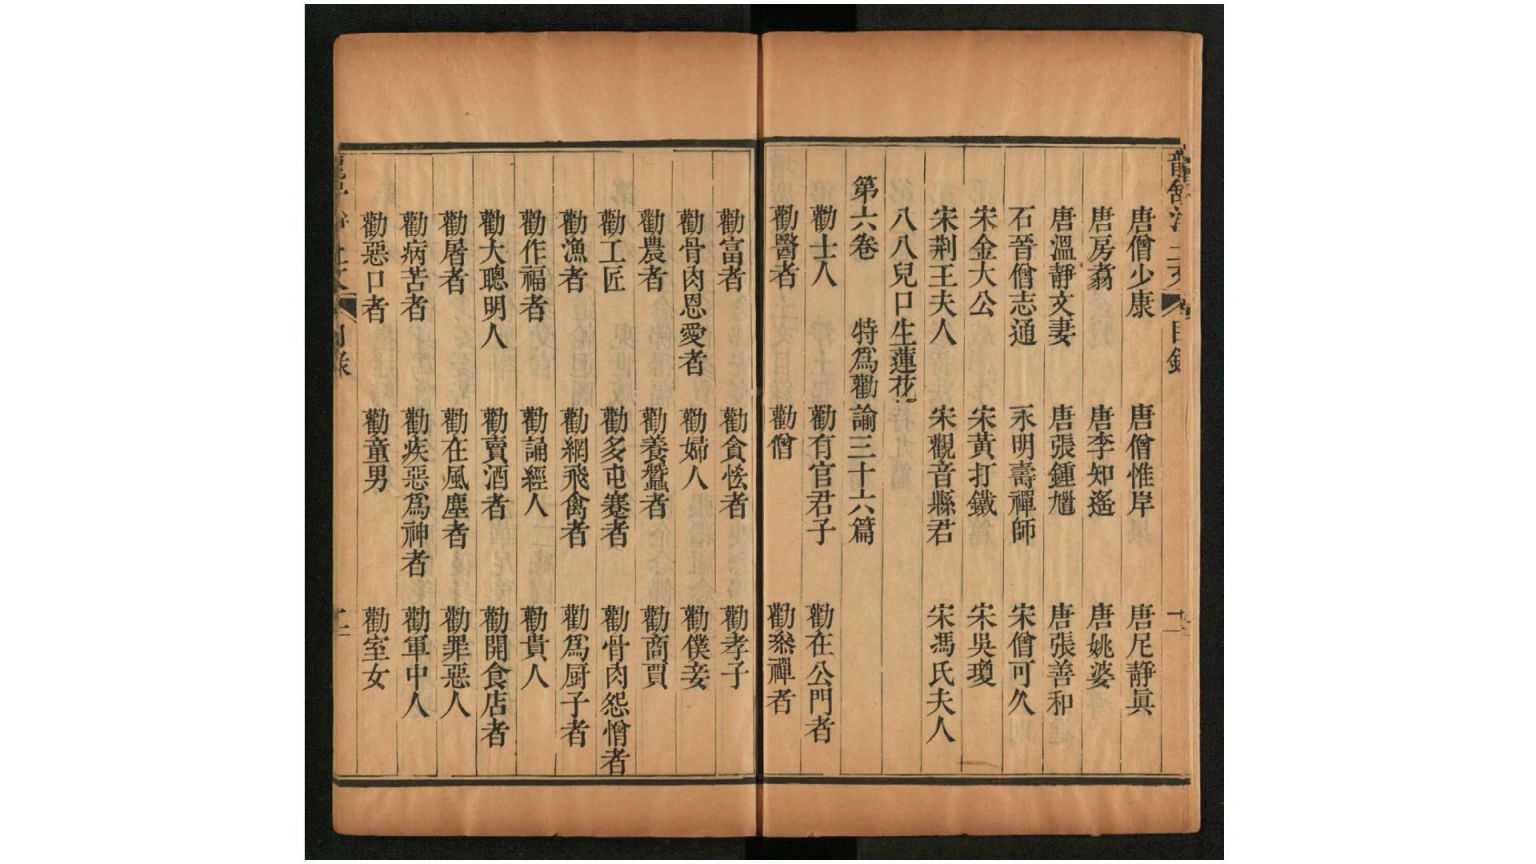 龍舒淨土文 目錄 二
唐僧少康 唐僧惟岸 唐尼靜眞
唐房翥 唐李知遙 唐姚婆
唐溫靜文妻 唐張鍾馗 唐張善和
石晉僧志通 永明壽禪師 宋僧可久
宋金大公 宋黃打鐵 宋吳瓊
宋荆王夫人 宋觀音縣君 宋馮氏夫人
八八兒口生蓮花
第六卷 特爲勸諭三十六篇
勸士人 勸有官君子 勸在公門者
勸醫者 勸僧 勸叅禪者
勸富者 勸貪恡者 勸孝子
勸骨肉恩愛者 勸婦人 勸僕妾
勸農者 勸養蠶者 勸商賈
勸工匠 勸多屯蹇者 勸骨肉怨憎者
勸漁者 勸網飛禽者 勸爲厨子者
勸作福者 勸誦經人 勸貴人
勸大聰明人 勸賣酒者 勸開食店者
勸屠者 勸在風塵者 勸罪惡人
勸病苦者 勸疾惡爲神者 勸軍中人
勸惡口者 勸童男 勸室女